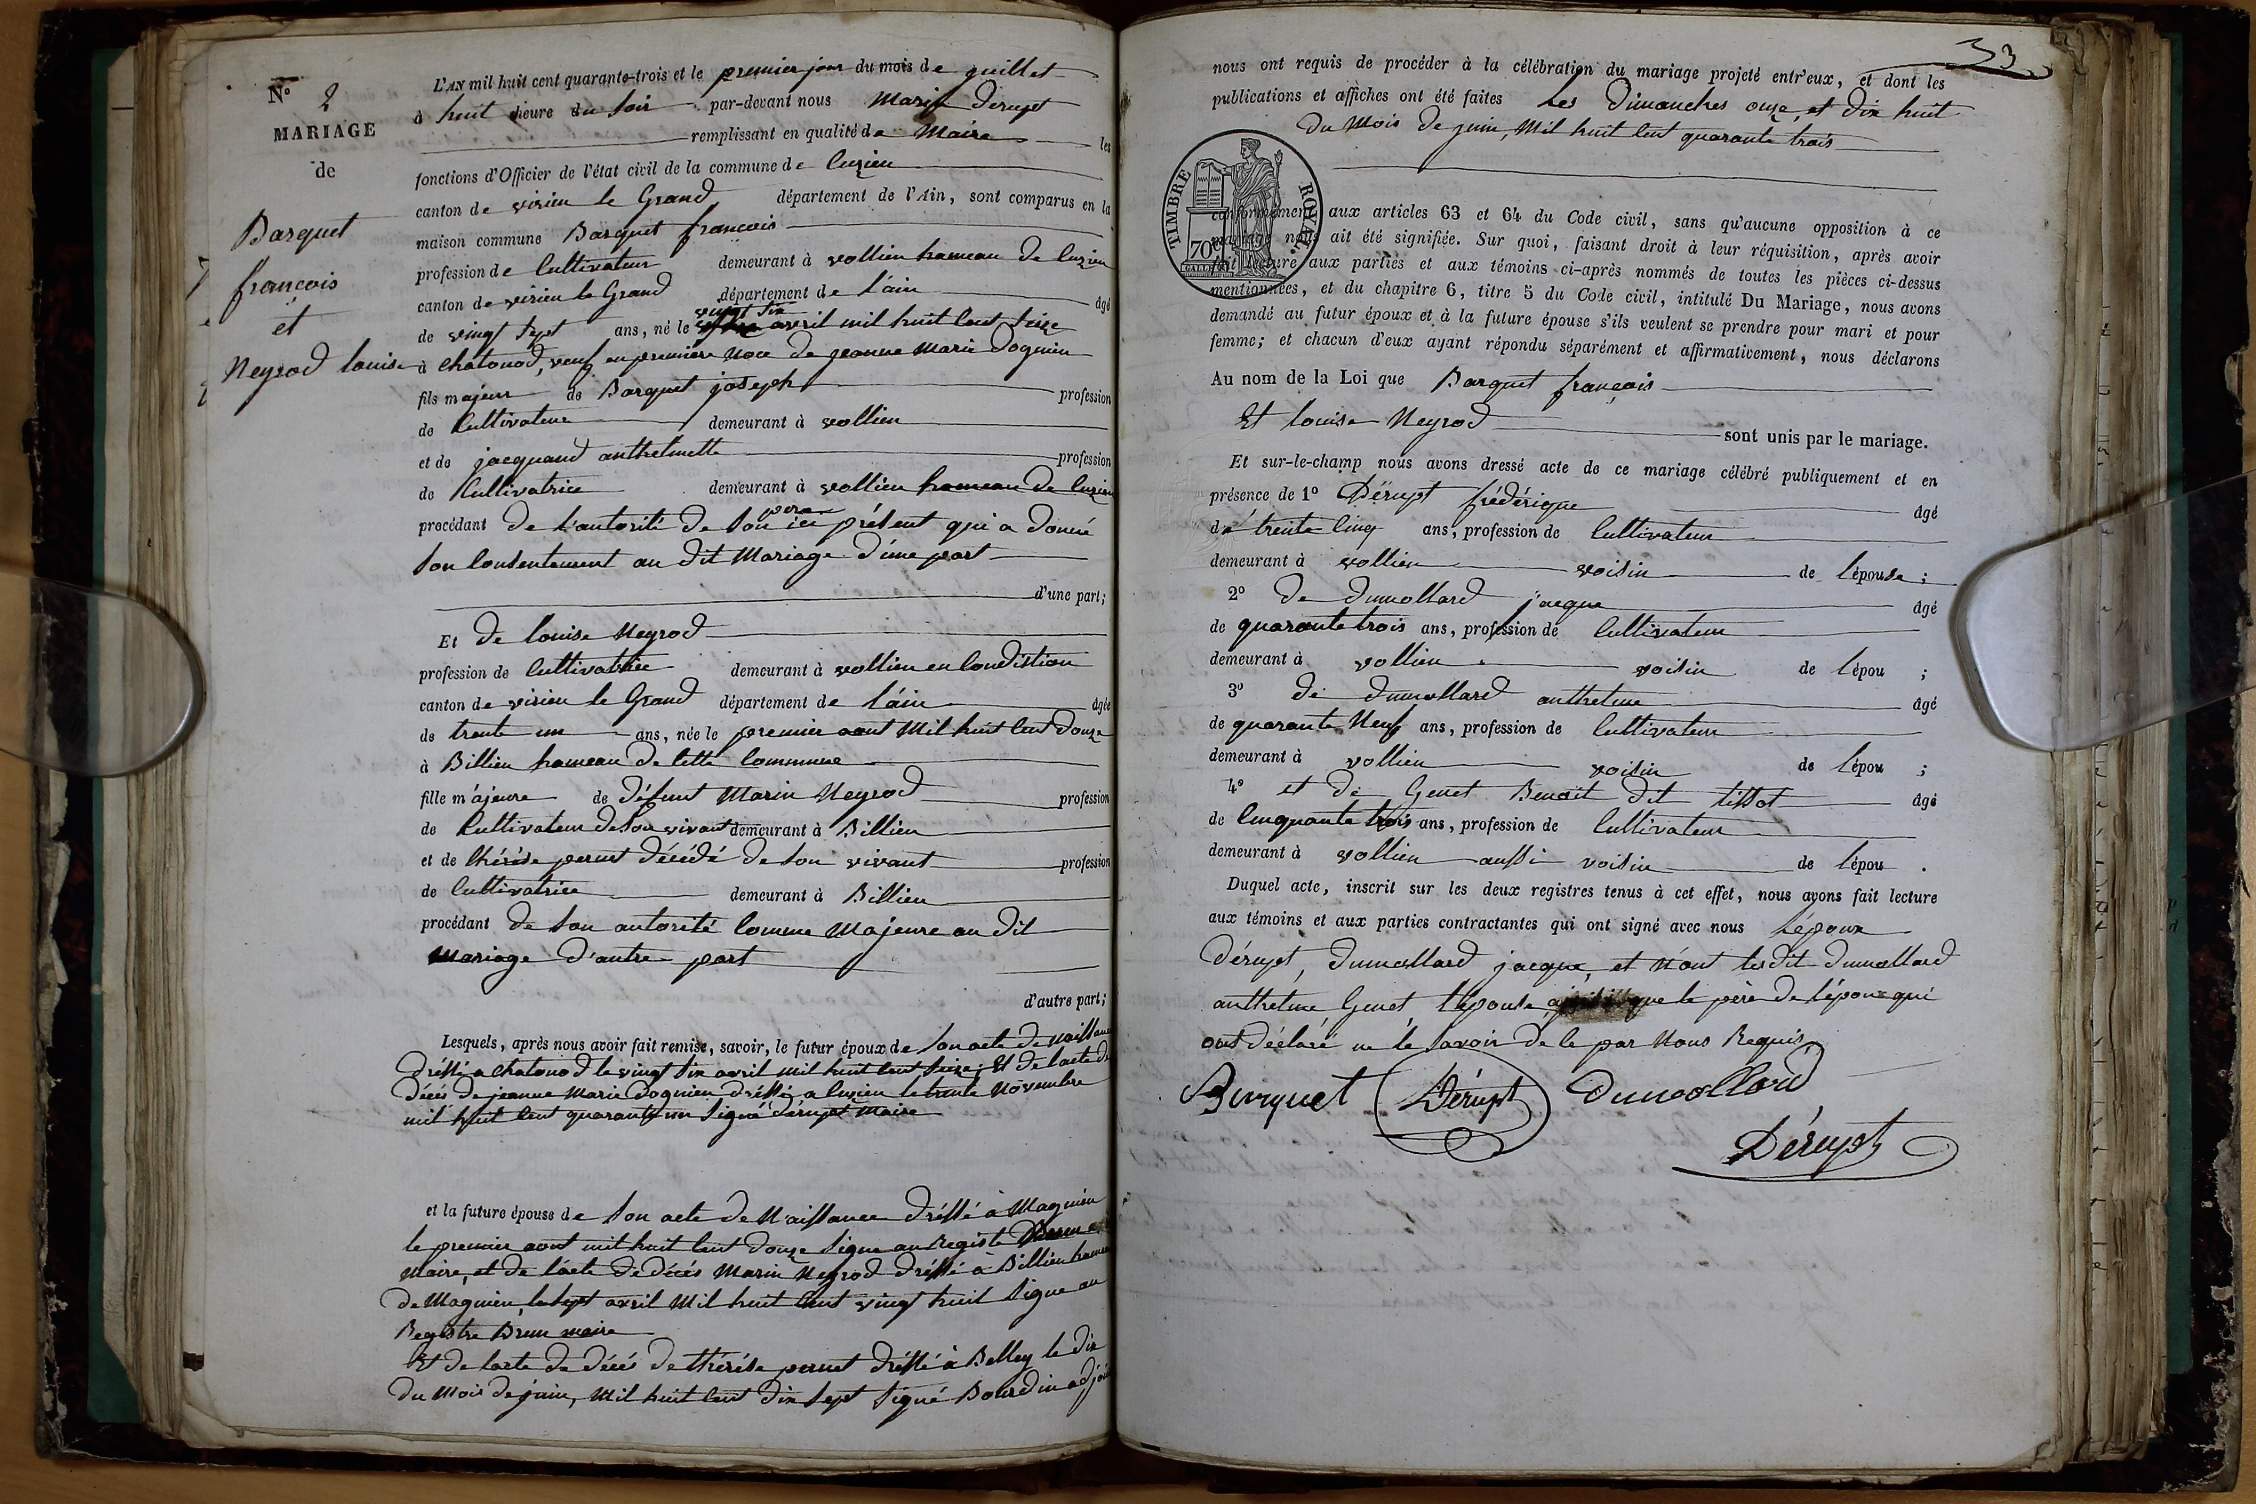 N° 2
MARIAGE
de
Barquet
francois
et
Neyrod louise
L'AN mil huit cent quarante-trois et le premier jour du mois de juillet
à huit heure du soir par-devant nous Marin Derupt
remplissant en qualité de Maire les
fonctions d'Officier de l'état civil de la commune de Cuzieu
canton de virieu le Grand département de l'Ain, sont comparus en la
maison commune Barquet francois
profession de Cultivateur demeurant à vollien hameau de Cuzieu
canton de virieu le Grand département de l'ain âgé
vingt six
de vingt sept ans, né le avril mil huit Cent seize
à Chatonod, veuf en première Noce de jeanne Marie Dognin
fils majeur de Barquet joseph profession
de Cultivateur demeurant à vollien
et de jacquand anthelmette profession
de Cultivatrice demeurant à vollien hameau de Cuzieu
père
procédant de L'autorité de Son ici présent qui a donné
Son Consentement au dit Mariage d'une part
d'une part;
Et de louise Neyrod
profession de Cultivatrice demeurant à vollien en Condistion
canton de virieu le Grand département de l'ain âgée
de trente un ans, née le premier aout Mil huit Cent Douze
à Billieu hameau de Cette Commune
fille majeure de Défunt Marin Neyrod profession
de Cultivateur de Son vivant demeurant à Billieu
et de thérèse pernet décédé de Son vivant profession
de Cultivatrice demeurant à Billieu
procédant de Son autorité Comme Majeure au dit
Mariage D'autre part
d'autre part;
Lesquels, après nous avoir fait remise, savoir, le futur époux de Son acte de naissance
dréssé a Chatonod le vingt Six avril mil huit Cent Seize; Et de l'acte de
Décés de jeanne Marie Dognin dréssé a Cuzieu le trente Novembre
mil huit Cent quarante un Signé dérupt maire
et la future épouse de Son acte de Naissance dréssé à Magnieu
le premier aout mil huit Cent Douze Signe au Registe Brun
Maire, et de l'acte de décés Marin Neyrod dréssé à Billieu hameau
de Magnieu, le Sept avril Mil huit Cent vingt huit Signe au
Registre Brun maire
Et de l'acte de décés de thérése pernet dréssé à Belley le dix
du Mois de juin, Mil huit Cent dix Sept Signé Bourdin adjoint
33
nous ont requis de procéder à la célébration du mariage projeté entr'eux, et dont les
publications et affiches ont été faites Les Dimanches onze, et Dix huit
Du Mois de juin, Mil huit Cent quarante trois
TIMBRE ROYAL
70c
conformément aux articles 63 et 64 du Code civil, sans qu'aucune opposition à ce
mariage nous ait été signifiée. Sur quoi, faisant droit à leur réquisition, après avoir
fait lecture aux parties et aux témoins ci-après nommés de toutes les pièces ci-dessus
mentionnées, et du chapitre 6, titre 5 du Code civil, intitulé Du Mariage, nous avons
demandé au futur époux et à la future épouse s'ils veulent se prendre pour mari et pour
femme; et chacun d'eux ayant répondu séparément et affirmativement, nous déclarons
Au nom de la Loi que Barquet françois
Et louise Neyrod sont unis par le mariage.
Et sur-le-champ nous avons dressé acte de ce mariage célébré publiquement et en
présence de 1° Dérupt frédérique âgé
de trente Cinq ans, profession de Cultivateur
demeurant à vollien voisin de l'épouse;
2° De Dumollard jacque âgé
de quarante trois ans, profession de Cultivateur
demeurant à vollien voisin de l'épou ;
3° de Dumollard anthelme âgé
de quarante Neuf ans, profession de Cultivateur
demeurant à vollien voisin de l'épou ;
4° et de Genet Benoit dit tissot âgé
de Cinquante trois ans, profession de Cultivateur
demeurant à vollien aussi voisin de l'épou .
Duquel acte, inscrit sur les deux registres tenus à cet effet, nous avons fait lecture
aux témoins et aux parties contractantes qui ont signé avec nous L'époux
Dérupt, Dumollard jacque, et N'ont les dit Dumollard
anthelme Genet, l'épouse que le père de l'époux qui
ont déclaré ne le Savoir de le par Nous Requis,
Burquet Dérupt Dumollard
Dérupt